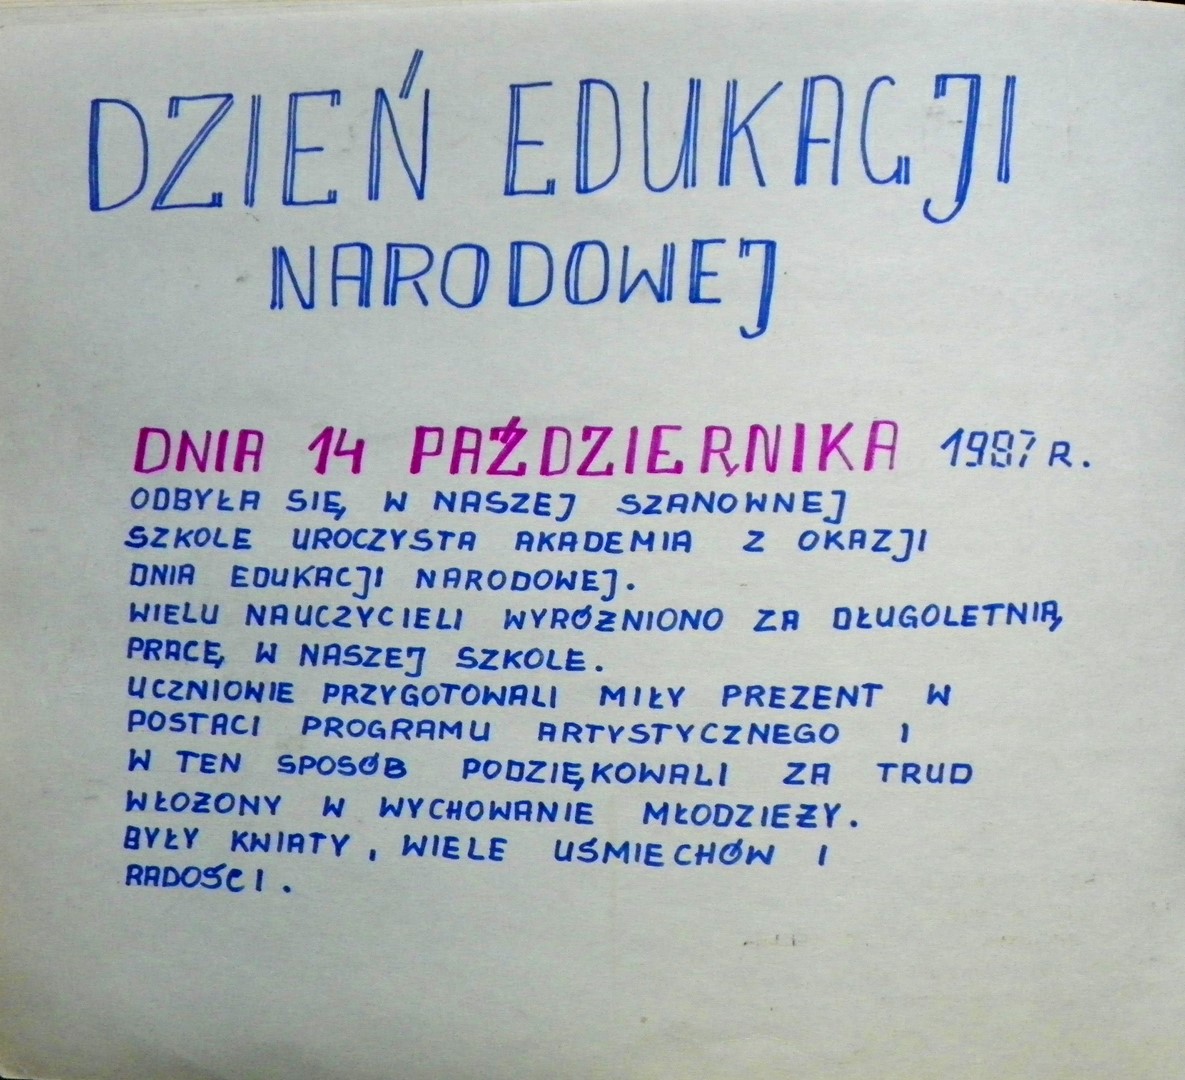 DZIEŃ EDUKACJI
NARODOWEJ
DNIA 14 PAŹDZIERNIKA 1987 R.
ODBYŁA SIĘ, W NASZEJ SZANOWNEJ
SZKOLE UROCZYSTA AKADEMIA Z OKAZJI
DNIA EDUKACJI NARODOWEJ.
WIELU NAUCZYCIELI WYRÓŻNIONO ZA DŁUGOLETNIĄ
PRACĘ W NASZEJ SZKOLE.
UCZNIOWIE PRZYGOTOWALI MIŁY PREZENT W
POSTACI PROGRAMU ARTYSTYCZNEGO I
W TEN SPOSÓB PODZIĘKOWALI ZA TRUD
WŁOŻONY W WYCHOWANIE MŁODZIEŻY.
BYŁY KWIATY, WIELE UŚMIECHÓW I
RADOŚCI.